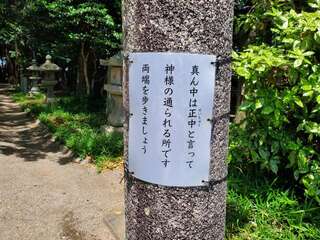 真ん中は正中と言って
神様の通られる所です
両端を歩きましょう